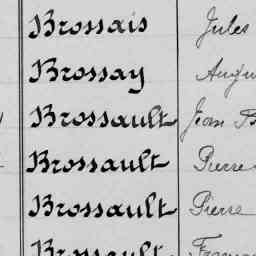 Brossais Jules
Brossay Augu
Brossault Jean B
Brossault Pierre
Brossault Pierre
Brossault Franço